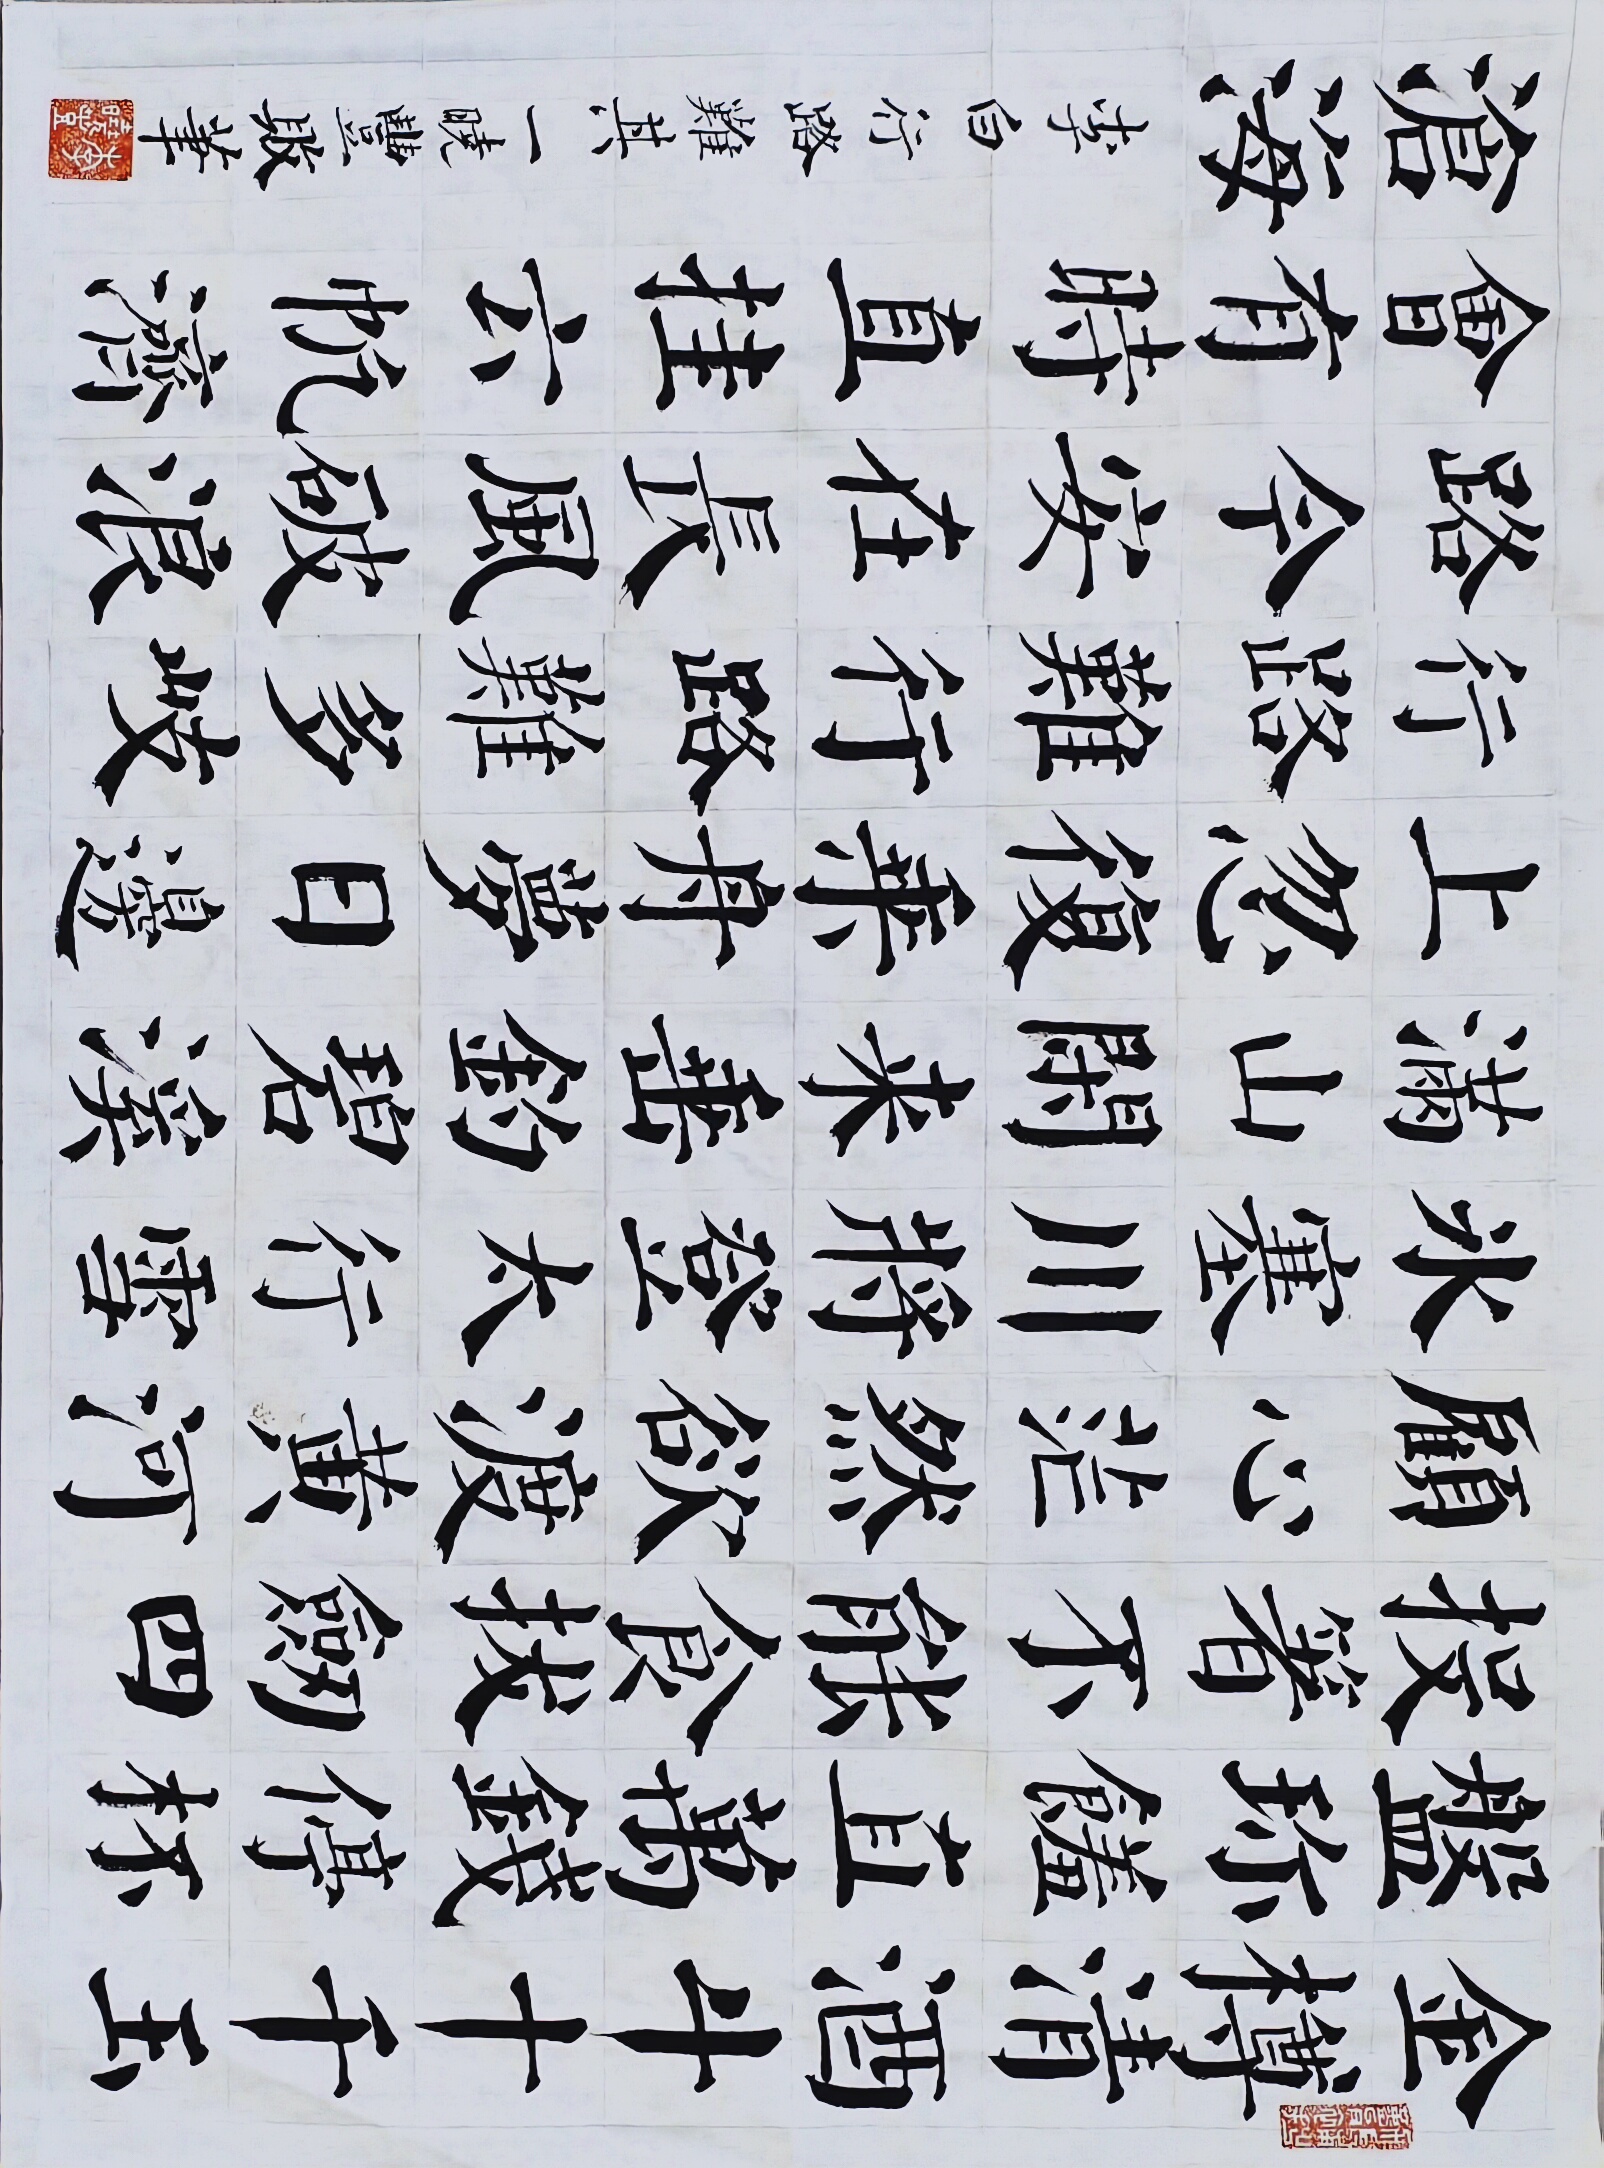 金樽清酒斗十千玉
盤珍饈直萬錢停杯
投箸不能食拔劍四
顧心茫然欲渡黃河
冰塞川將登太行雪
滿山閑來垂釣碧溪
上忽復乘舟夢日邊
行路難行路難多歧
路今安在長風破浪
會有時直挂云帆濟
滄海
李白行路難其一曉敬筆